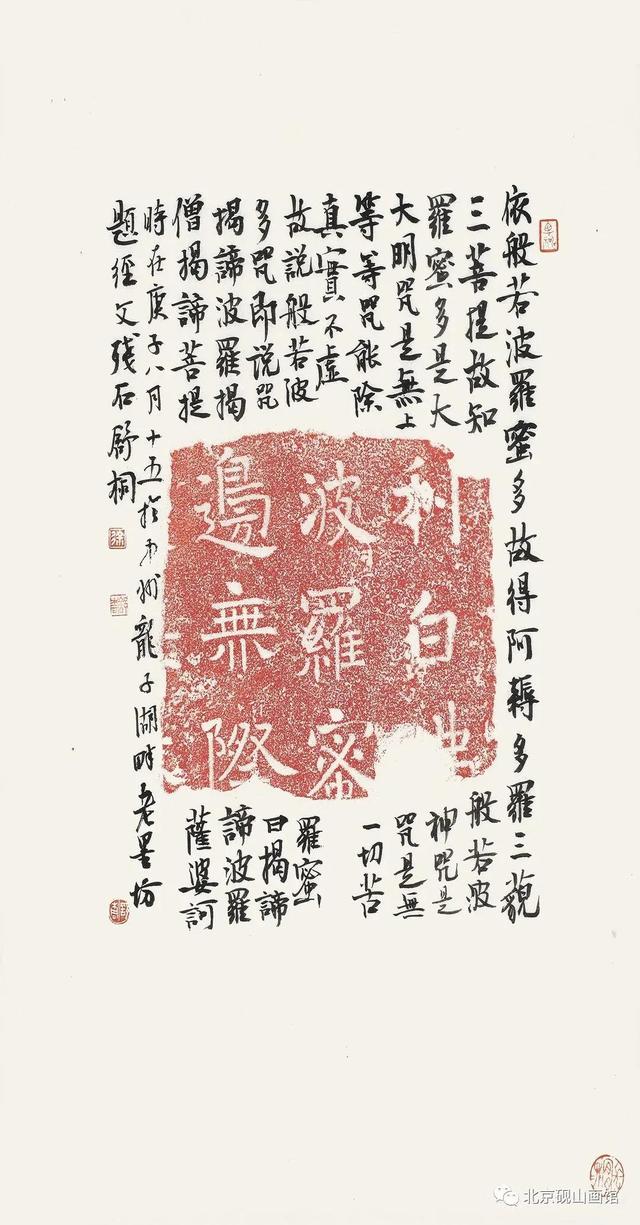 依般若波羅蜜多故得阿耨多羅三藐
三菩提故知般若波
羅蜜多是大神咒是
大明咒是無上咒是無
等等咒能除一切苦
真實不虛
故說般若波羅蜜
多咒即說咒曰揭諦
揭諦波羅揭諦波羅
僧揭諦菩提薩婆訶
時在庚子八月十五於中州龍子湖畔老墨坊
題經文殘石舒桐
利白
波羅蜜
邊無際
北京砚山画馆